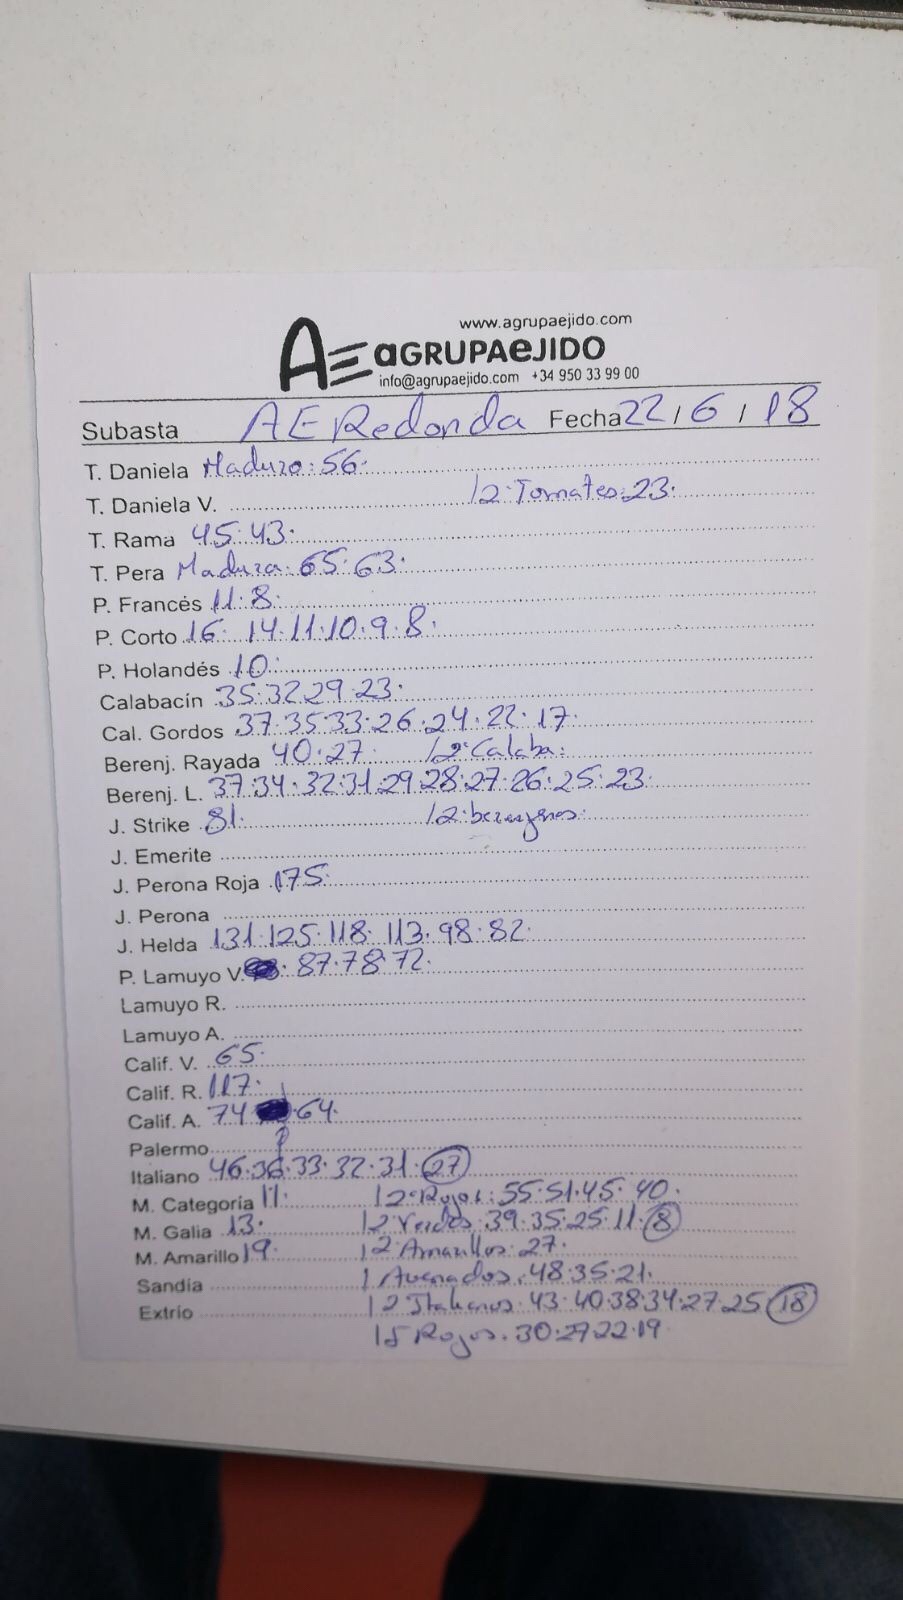 www.agrupaejido.com
AE aGRUPAeJIDO
info@agrupaejido.com +34 950 33 99 00
Subasta AE Redonda Fecha 22 / 6 / 18
T. Daniela Maduro: 56.
T. Daniela V. /2ª Tomates: 23.
T. Rama 45. 43.
T. Pera Madura: 65. 63.
P. Francés 11. 8.
P. Corto 16. 14. 11. 10. 9. 8.
P. Holandés 10.
Calabacín 35. 32. 29. 23.
Cal. Gordos 37. 35. 33. 26. 24. 22. 17.
Berenj. Rayada 40. 27. /2ª Calaba:
Berenj. L. 37. 34. 32. 31. 29. 28. 27. 26. 25. 23.
J. Strike 81. /2ª berenjenas:
J. Emerite
J. Perona Roja 175.
J. Perona
J. Helda 131. 125. 118. 113. 98. 82.
P. Lamuyo V. 87. 78. 72.
Lamuyo R.
Lamuyo A.
Calif. V. 65.
Calif. R. 117.
Calif. A. 74 64.
Palermo
Italiano 46. 36. 33. 32. 31. 27
M. Categoría 11. /2ª Rojos: 55. 51. 45. 40.
M. Galia 13. /2 Verdes: 39. 35. 25. 11. 8
M. Amarillo 19. /2 Amarillos: 27.
Sandía / Avenados: 48. 35. 21.
Extrío /2 Italianos: 43. 40. 38. 34. 27. 25 18
Rojos: 30. 27. 22. 19.